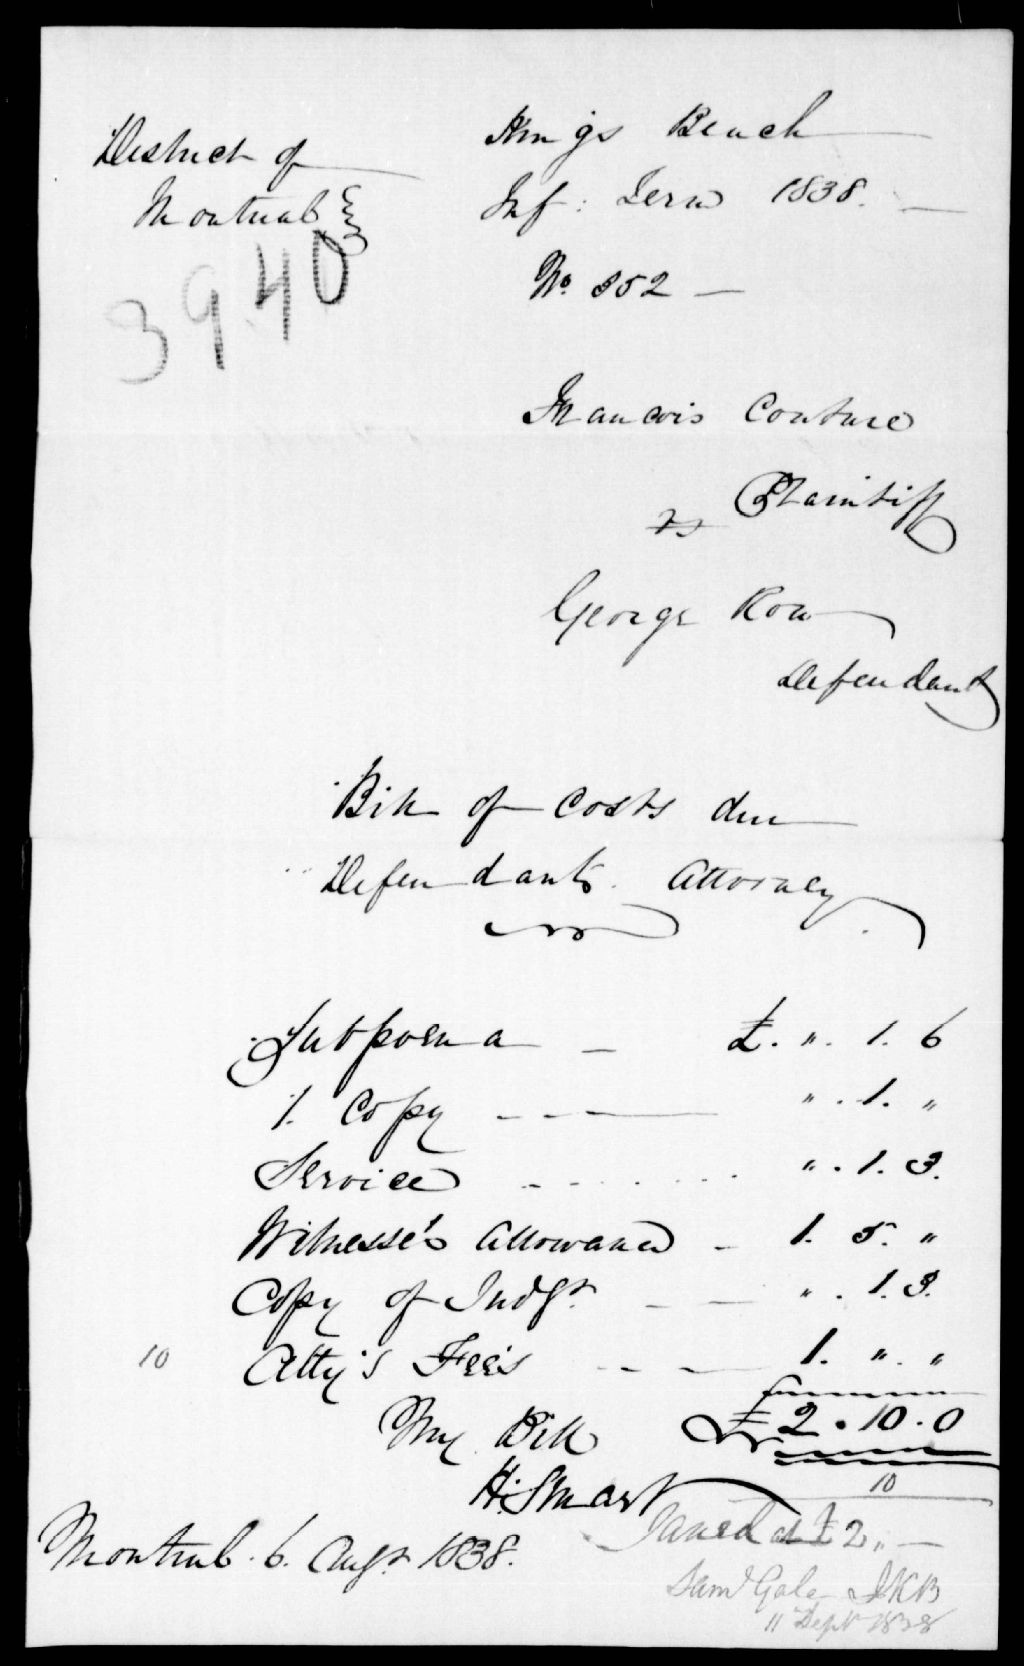 District of
Montreal
3940
Kings Bench
Inf: Term 1838.
No. 852
Francois Couture
Plaintiff
vs
George Row
Defendant
Bill of Costs due
Defendants Attorney
Subpoena - £. ". 1. 6
1. Copy " . 1. "
Service " . 1. 3.
Witnesse's Allowance - 1. 5. "
Copy of Judgt " . 1. 3.
10 Atty's Fee's 1. ". "
My Bill £2.10.0
H. Smart
10
Taxed at £2,, -
Montreal. 6. Augt 1838.
Saml Gale JKB
11 Sept 1838